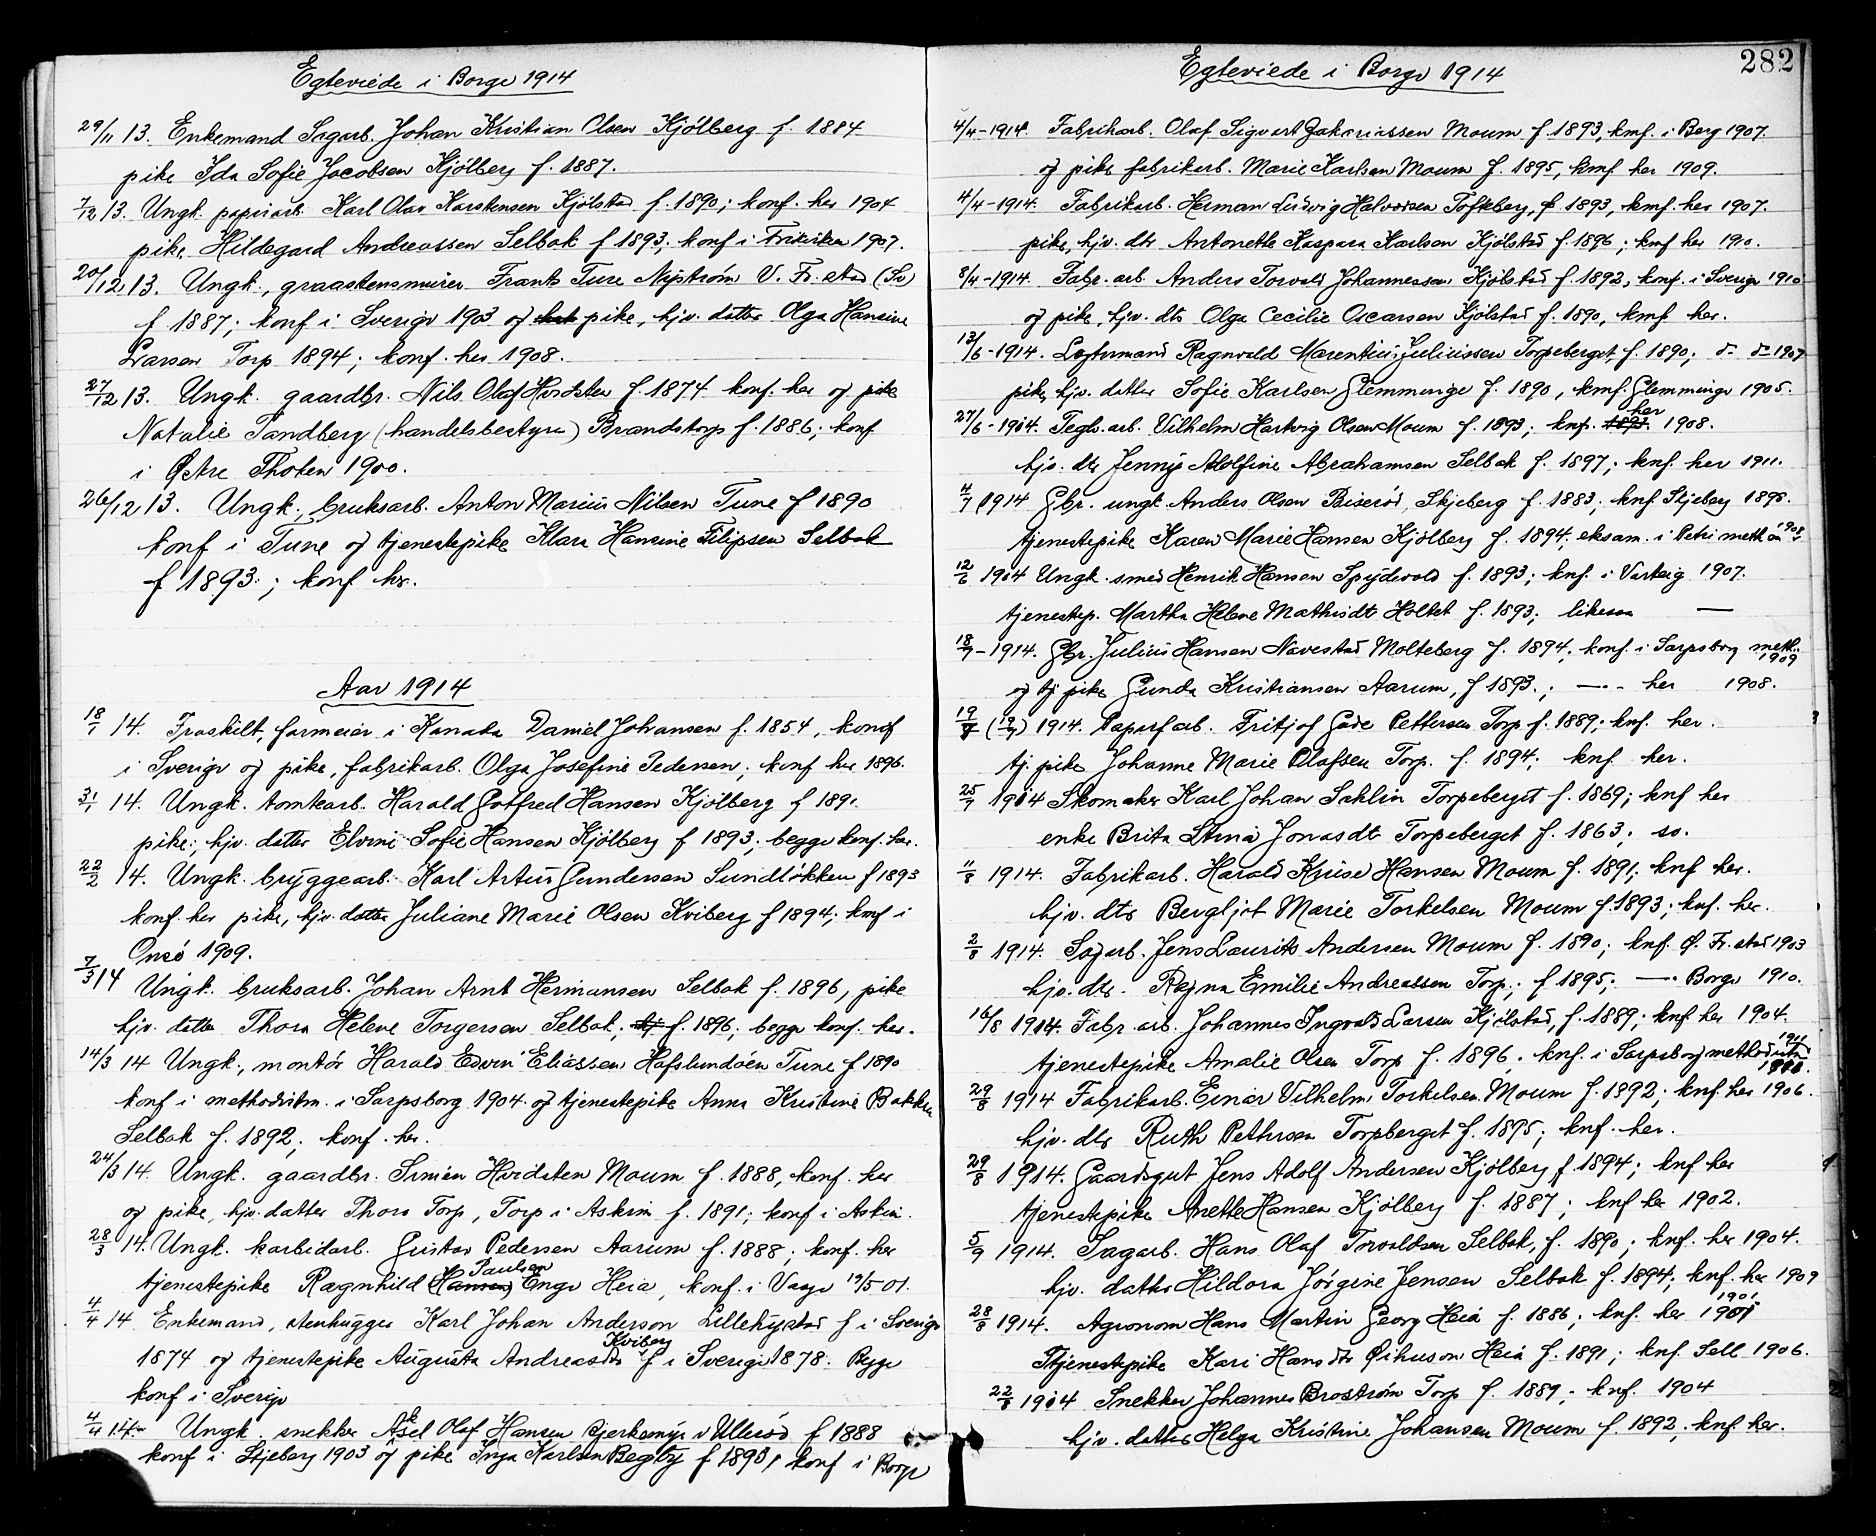 Egteviede i Borge 1914
29/11 13. Enkemand Sagarb. Johan Kristian Olsen Kjölberg f. 1884
pike Ida Sofie Jacobsen Kjölberg f. 1887.
7/12 13. Ungk. papirarb. Karl Olav Karstensen Kjölstad f. 1890; konf. her 1904
pike Hildegard Andreassen Selbak f 1893; konf i Frikirken 1907.
20/12 13. Ungk., graastensmurer Frants Ture Nyström V. Fr.stad (Sv)
f. 1887; konf i Sverige 1903 og pike, hjv. datter Olga Hansine
Larsen Torp 1894; konf. her 1908.
27/12 13. Ungk. gaardbr. Nils Olaf Hvidsten f. 1874 konf. her og pike
Natalie Tandberg (handelsbestyre) Brandstorp f. 1886; konf
i Østre Thoten 1900.
26/12 13. Ungk., bruksarb. Anton Marius Nilsen Tune f 1890
konf i Tune og tjenestepike Klara Hansine Filipsen Selbak
f 1893.; konf her.
Aar 1914
18/1 14. Fraskilt, farmeier i Kanada Daniel Johansen f. 1854, konf
i Sverige og pike, fabrikarb. Olga Josefine Pedersen; konf her 1896.
31/1 14. Ungk. tomtearb. Harald Gotfred Hansen Kjölberg f 1891.
pike, hjv. datter Elvine Sofie Hansen Kjölberg f 1893; begge konf. her.
22/2 14. Ungk. bryggearb. Karl Artur Gundersen Sundlökken f 1893
konf. her pike, hjv. datter Juliane Marie Olsen Kviberg f 1894; konf i
Onsö 1909.
7/3 14 Ungk. bruksarb. Johan Arnt Hermansen Selbak f. 1896, pike
hjv. datter Thora Helene Torgersen Selbak; f. 1896; begge konf. her.
14/3 14 Ungk., montör Harald Edvin Eliassen Hafslundöen Tune f 1890
konf i methodistm. i Sarpsborg 1904 og tjenestepike Anna Kristine Bakken
Selbak f. 1892; konf. her.
24/3 14. Ungk. gaardbr. Simen Hvidsten Moum f. 1888, konf. her
og pike, hjv. datter Thora Torp, Torp i Askim f. 1891; konf i Askim.
28/3 14. Ungk. karbidarb. Gustav Pedersen Aarum f. 1888; konf. her
tjenestepike Ragnhild Hansen Paulsen Enge Heia, konf. i Vaage 19/5 01.
4/4 14 Enkemand, stenhugger Karl Johan Anderson Lillehystad f i Sverige
1874 og tjenestepike Augusta Andreasdtr Kviberg f i Sverige 1878. Begge
konf i Sverige
4/4 14. Ungk. snekker Aksel Olaf Hansen Bjerkemyr v Ulleröd f 1888
konf i Skjeberg 1903 og pike Inga Karlsen Begby f 1893, konf i Borge
282
Egteviede i Borge 1914
4/4-1914. Fabrikarb. Olaf Sigvart Zakariassen Moum f 1893, knf. i Berg 1907.
og pike fabrikarb. Marie Karlsen Moum f. 1895, knf her 1909.
4/4-1914. Fabrikarb. Herman Ludvig Halvorsen Tofteberg, f 1893, knf. her 1907.
pike, hjv. dtr Antonette Kaspara Karlsen Kjölstad f. 1896; knf her 1910.
8/4-1914. Fabr. arb. Anders Torvald Johannessen Kjölstad f 1892, konf. i Sverige 1910
og pike, hjv. dtr Olga Cecilie Oscarsen Kjölstad f. 1890, knf. her.
13/6-1914. Logtermand Ragnvald Marentius Juliussen Torpeberget f. 1890; do do 1907
pike, hjv. datter Sofie Karlsen Glemminge f. 1890, knf. Glemminge 1905.
27/6-1914. Tegl. arb. Vilhelm Hartvig Olsen Moum f. 1893; knf. 1893 her 1908.
hjv. dtr Jennye Adolfine Abrahamsen Selbak f. 1897; knf. her 1911.
4/7 1914 Gbr. ungk. Anders Olsen Biseröd, Skjeberg f. 1883; knf Skjeberg 1898.
tjenestepike Karen Marie Hansen Kjölberg f. 1894; eksam. i Petri meth 1908
12/6 1914 Ungk. smed Henrik Hansen Spydevold f. 1893; knf. i Varteig 1907.
tjenestep. Martha Helene Mathisdtr Holtet f. 1893; likesaa —
18/7-1914. Gbr. Julius Hansen Navestad Molteberg f. 1894; konf. i Sarpsborg meth. 1909
og tj pike Gunda Kristiansen Aarum, f 1893.; — her 1908.
19/7 1914. Papirfarb. Fritjof Gade Pettersen Torp f. 1889; knf. her.
tj. pike Johanne Marie Olafsen Torp. f. 1894; knf her.
25/7 1914 Skomaker Karl Johan Sahlin Torpeberget f. 1869; knf her
enke Brita Stina Jonasdtr Torpeberget f. 1863; so.
11/8 1914. Fabrikarb. Harald Kruse Hansen Moum f. 1891; knf her.
hjv. dtr Bergljot Marie Torkelsen Moum f. 1893; knf. her.
2/8 1914. Sagarb. Jens Laurits Andersen Moum f. 1890; knf. Ø. Fr.stad 1903
hjv. dtr. Ragna Emilie Andreassen Torp; f 1895; — Borge 1910.
16/8 1914. Fabr. arb. Johannes Ingvald Larsen Kjölstad, f. 1889; knf her 1904.
tjenestepike Amalie Olsen Torp f. 1896; knf. i Sarpsborg
29/8 1914 Fabrikarb. Einar Vilhelm Torkelsen Moum f. 1892; knf. her 1906.
hjv. dtr Ruth Petterson Torpberget f. 1895; knf. her.
29/8 1914. Gaardsgut Jens Adolf Andersen Kjölberg f 1894; knf her
tjenestepike Anette Hansen Kjölberg f. 1887; knf her 1902.
5/9 1914. Sagarb. Hans Olaf Torvaldsen Selbak, f. 1890; knf. her 1904.
hjv. datter Hildora Jörgine Jensen Selbak f. 1894; knf. her 1909
28/8 1914. Agronom Hans Martin Georg Heia f. 1886; knf. her 1901
Tjenestepike Kari Hansdtr Heia f. 1891; knf. Sell 1906.
22/8 1914 Snekker Johannes Broström Torp f. 1889; knf. 1904
hjv. datter Helga Kristine Johansen Moum f. 1892; knf. her.